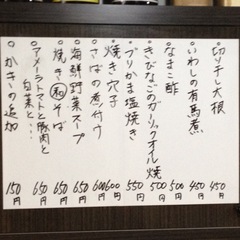 切り干し大根 450円
いわしの有馬煮 450円
なまこ酢 500円
きびなごのガーリックオイル焼 500円
ブリかま塩焼き 550円
焼き穴子 600円
さばの煮付け 600円
海鮮野菜スープ 650円
焼き和そば 650円
アメーラトマトと豚肉と
白菜と… 650円
かきの追加 150円